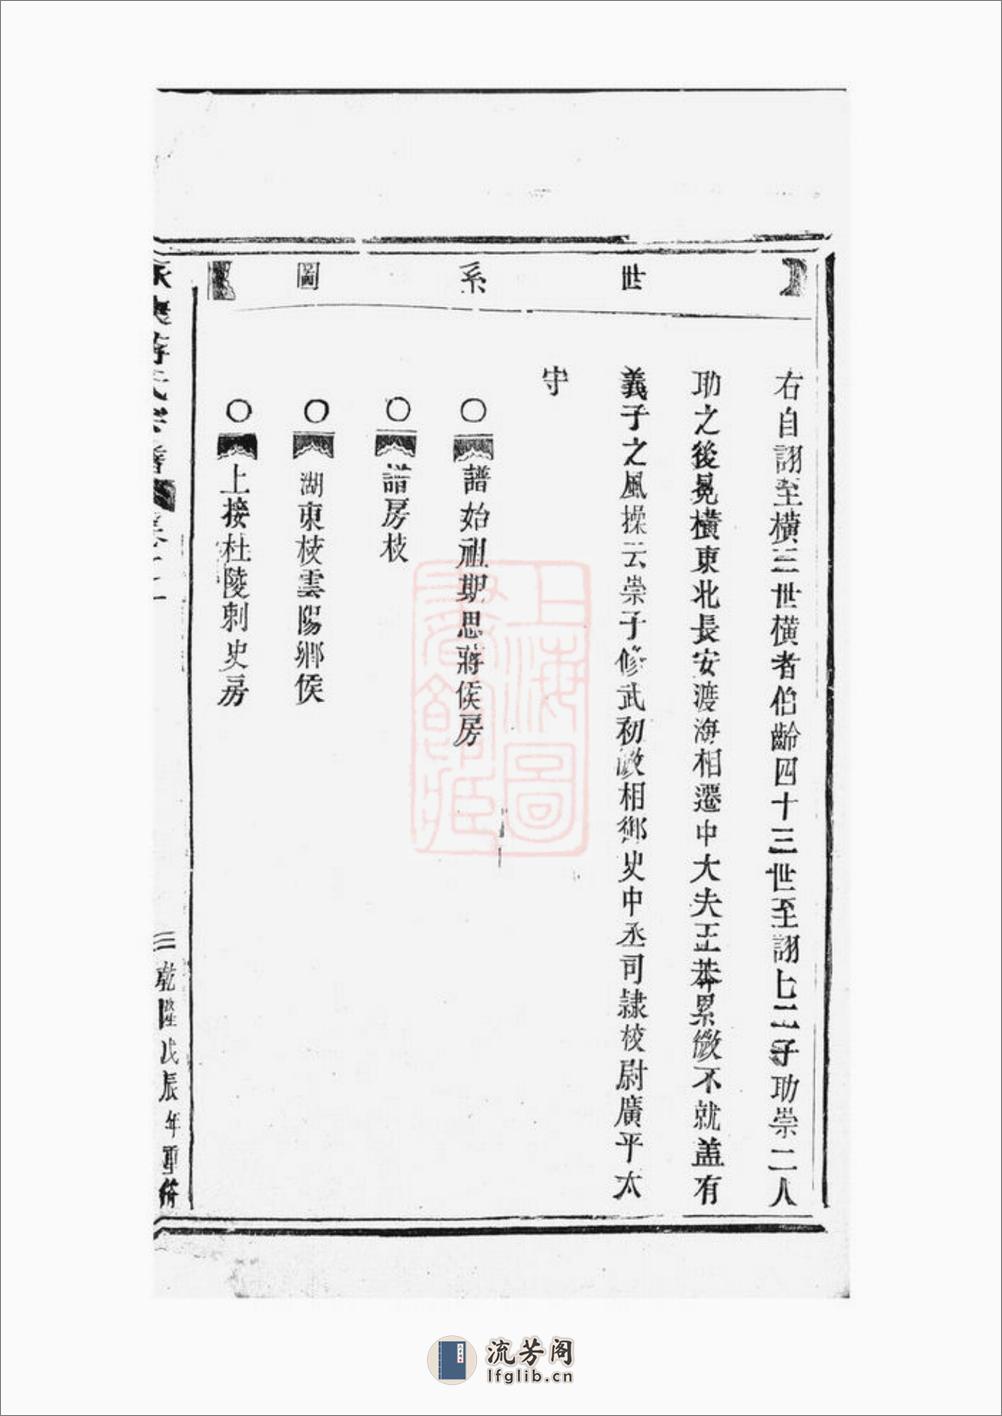 世系圖
右自詡至橫三世橫者伯齡四十三世至詡上二子功崇二人
功之後晃橫東北長安渡海相遷中大夫王莽累徵不就蓋有
義子之風操云崇子修武初歟相鄉史中丞司隷校尉廣平太
守
〇譜始祖期思蔣侯房
〇譜房枝
〇湖東枝雲陽鄉侯
〇上接杜陵刺史房
蔣氏宗譜
三 乾隆戊辰年重修
上海圖書館藏
流芳阁
lfglib.cn